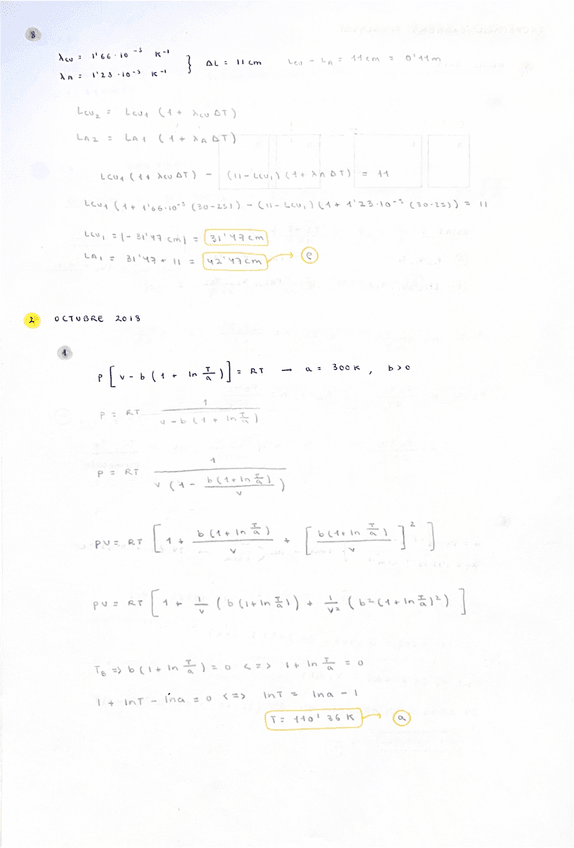 8
λcu = 1'66·10⁻⁵ K⁻¹
λA = 1'23·10⁻⁵ K⁻¹ } ΔL = 11 cm Lcu - LA = 11 cm = 0'11 m
Lcu₂ = Lcu₁ (1 + λcu ΔT)
LA₂ = LA₁ (1 + λA ΔT)
Lcu₁ (1 + λcu ΔT) - (11 - Lcu₁) (1 + λA ΔT) = 11
Lcu₁ (1 + 1'66·10⁻⁵ (30-25)) - (11 - Lcu₁) (1 + 1'23·10⁻⁵ (30-25)) = 11
Lcu₁ = |- 31'47 cm| = 31'47 cm
LA₁ = 31'47 + 11 = 42'47 cm → e
2 OCTUBRE 2018
1
P [v - b (1 + ln T/a)] = RT → a = 300 K, b > 0
P = RT 1/(v - b (1 + ln T/a))
P = RT 1/(v (1 - b(1 + ln T/a)/v))
PV = RT [1 + b(1 + ln T/a)/v + [b(1 + ln T/a)/v]²]
PV = RT [1 + 1/v (b (1 + ln T/a)) + 1/v² (b² (1 + ln T/a)²)]
TB => b (1 + ln T/a) = 0 <=> 1 + ln T/a = 0
1 + lnT - lna = 0 <=> lnT = lna - 1
T = 110'36 K → a